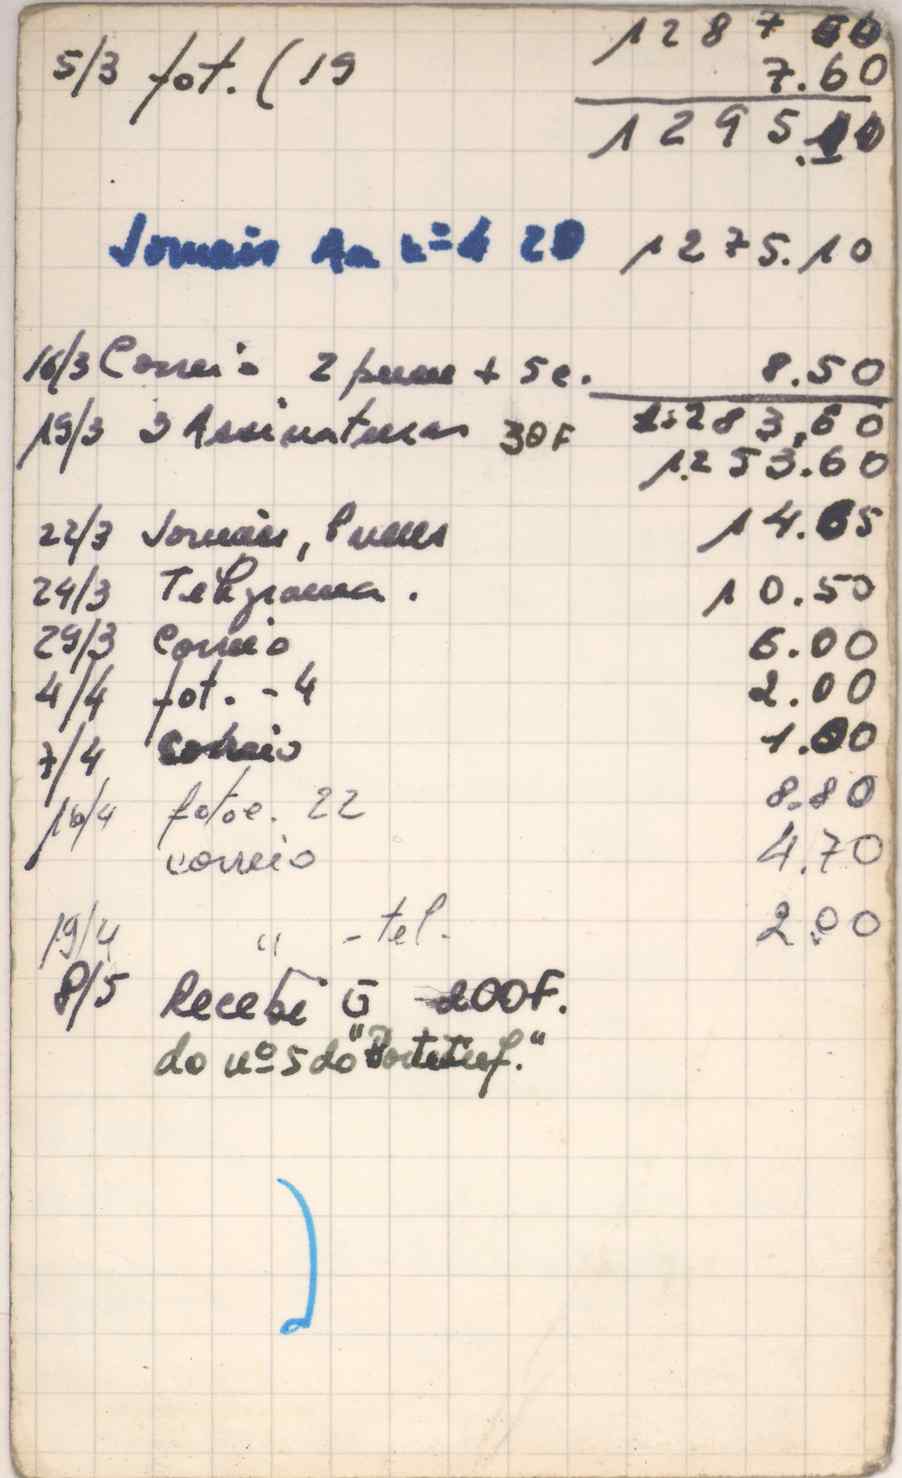 1287
5/3 fot. (19 7.60
1295.10
Jornais An nº 4 20 1275.10
16/3 Correio 2 + 5 e. 8.50
19/3 3 Assinaturas 30F 1.283,60
1.253.60
22/3 Jornais, 14.65
24/3 Telegrama. 10.50
29/3 Correio 6.00
4/4 fot. - 4 2.00
7/4 correio 1.00
16/4 fotoc. 22 8.80
correio 4.70
19/4 " - tel. 2.00
8/5 Recebi 200F.
do nº 5 do